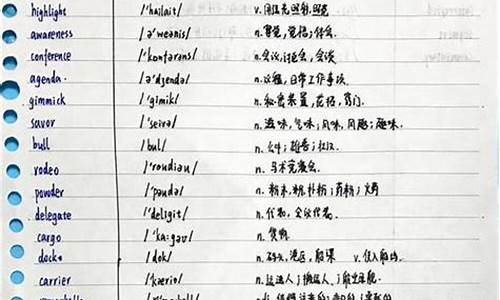 highlight /'hailait/ v. 用强光照射,照亮
awareness /ə'weənis/ n. 察觉,觉悟,体会.
conference /'kɔnfərəns/ n. 会议,讨论会,会谈
agenda /ə'dʒendə/ n. 议程,日常工作事项.
gimmick /'gimik/ n. 秘密装置,花招,窍门.
savor /'seivə/ n. 滋味,气味;风味,风趣;趣味.
bull /bul/ n. 公牛;
rodeo /'roudiəu/ n. 马术竞赛会.
powder /'paudə/ n. 粉末,粉,扑粉;药粉;火药
delegate /'deligit/ n. 代表,会议代表.
cargo /'ka:gəu/ n. 货物
docks /dok/ n. 码头,港区,船渠 v. 使入船坞.
carrier /'kæriə/ n. 运送人;搬运人;航空母舰.